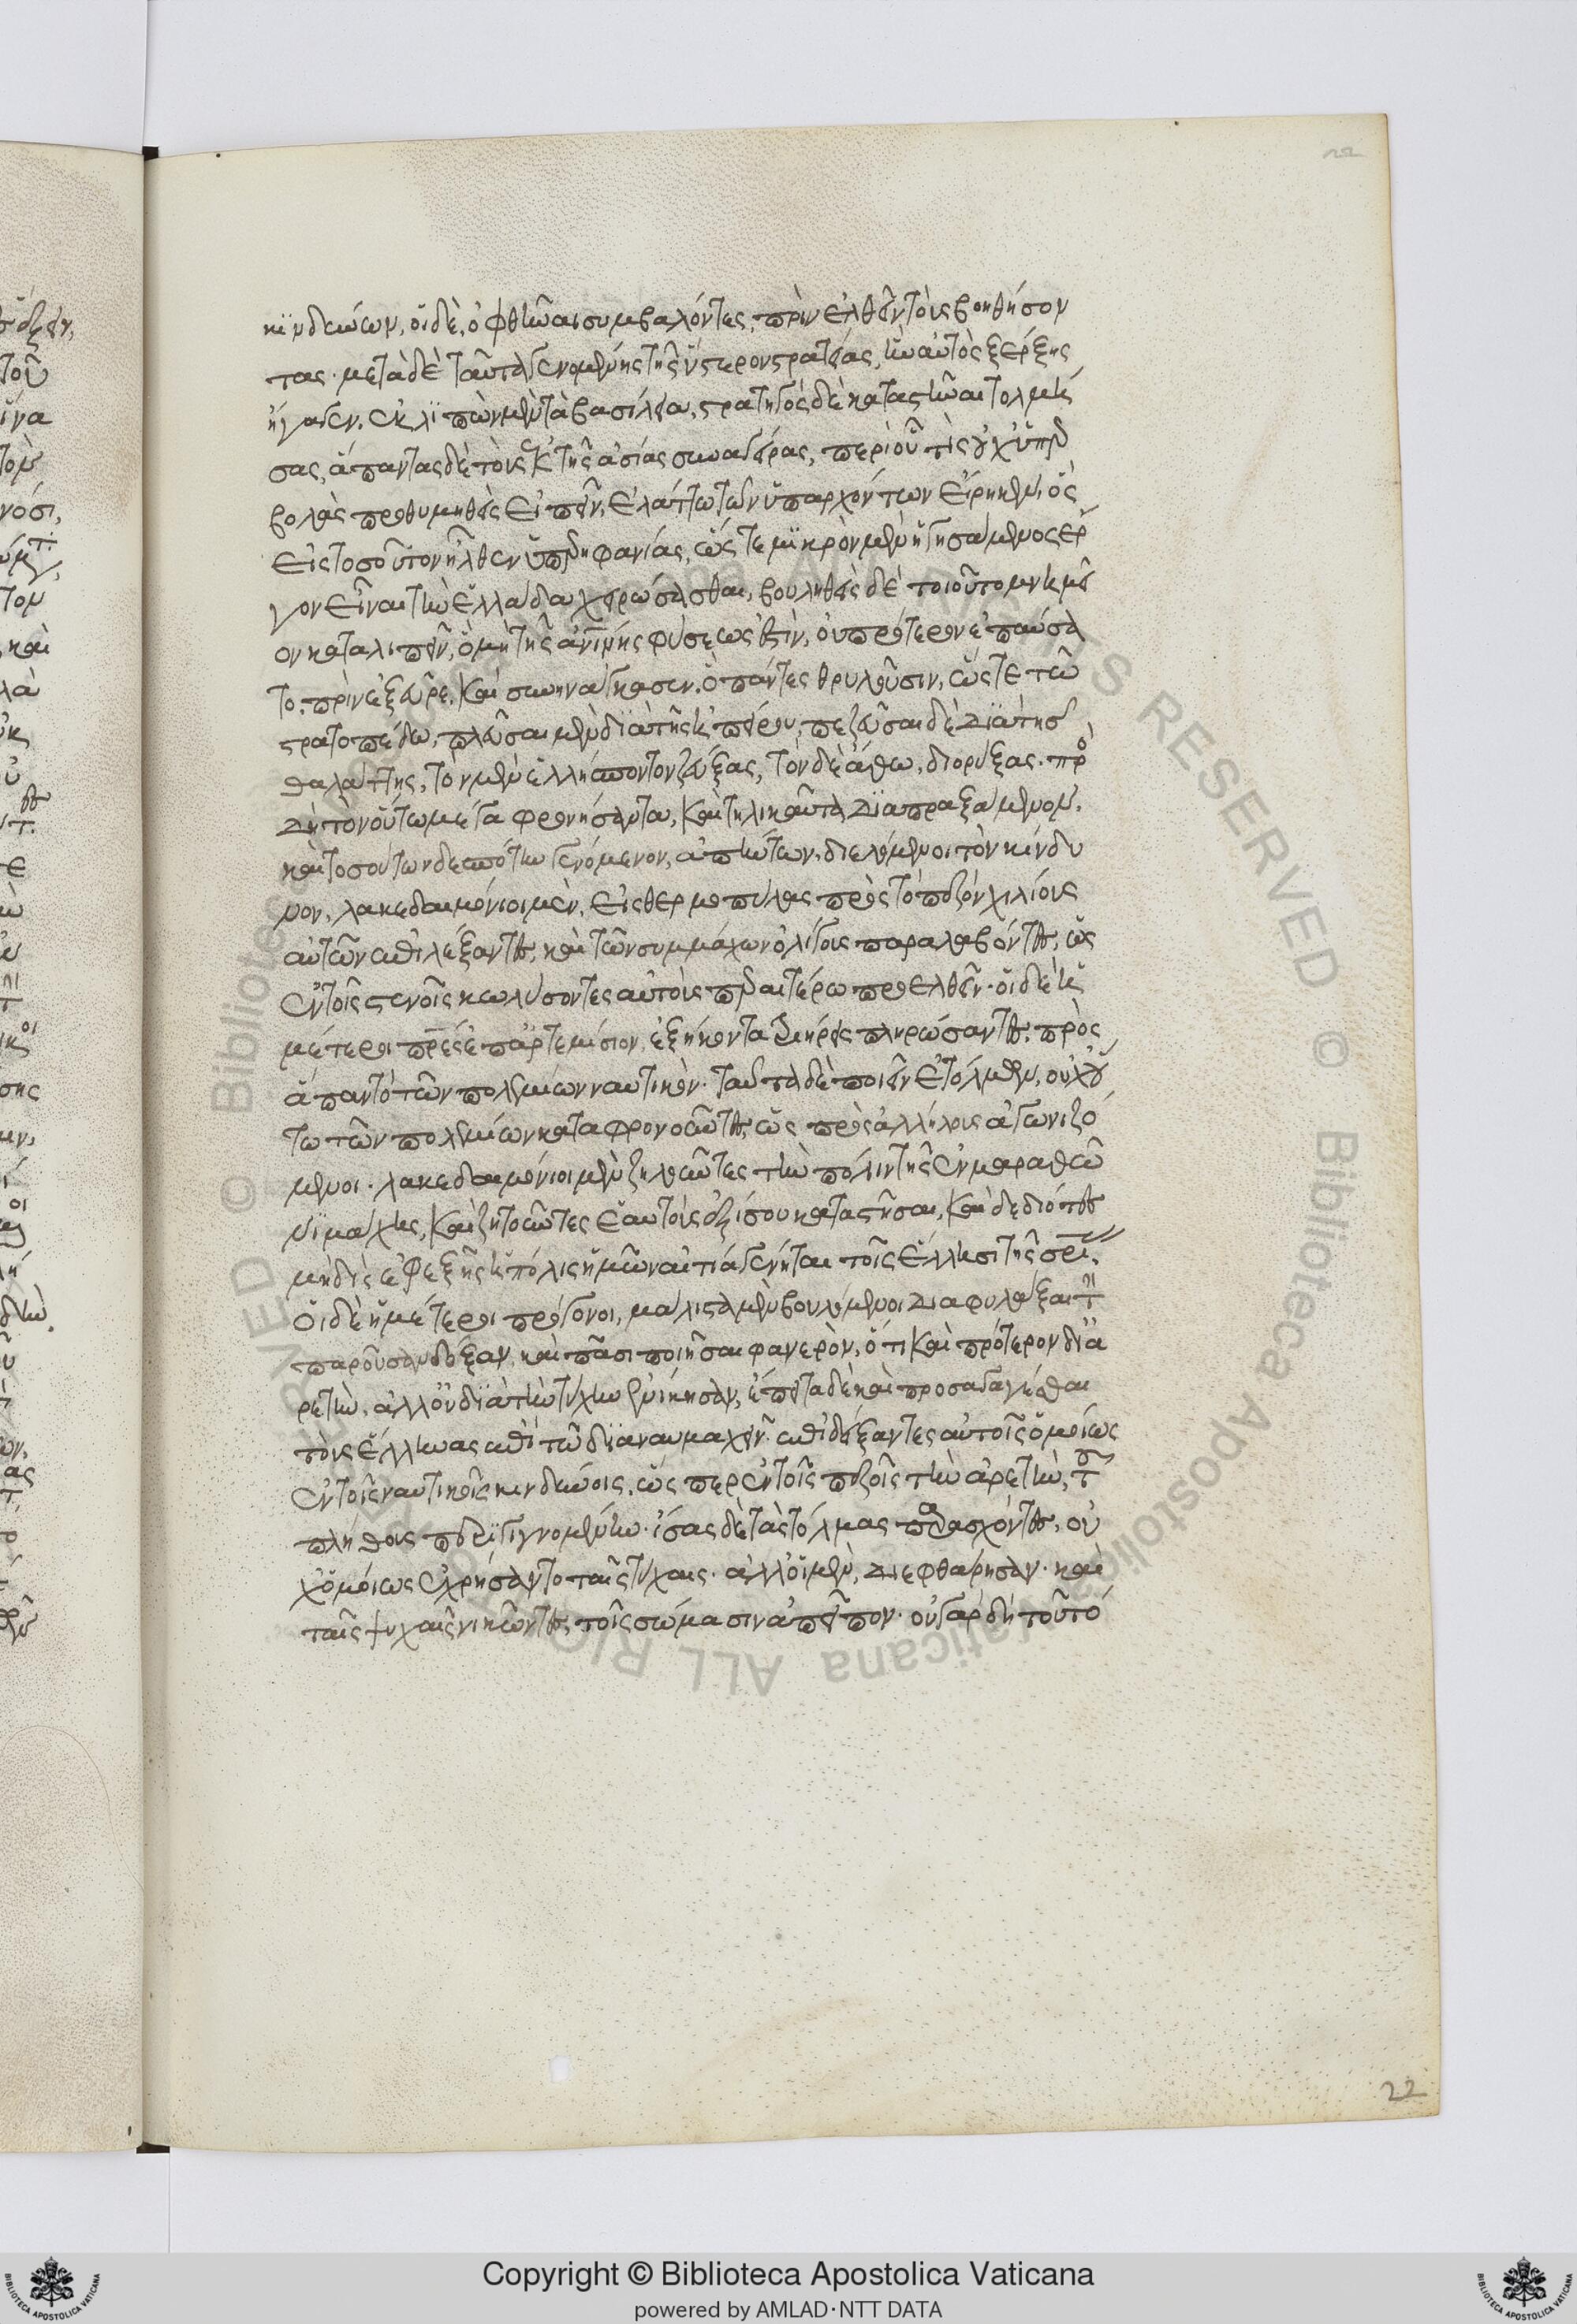 κϊνδύνων, οἱ δὲ, ὀφθῆναι συμβαλόντες, πρὶν ἐλθεῖν τοὺς βοηθήσον
τας· μετὰ δὲ ταῦτα γενομένης τῆς ὕστερον στρατείας, ἣν αὐτὸς ξέρξης
ἤγαγεν, ἐκλϊπὼν μὲν τὰ βασίλεια, στρατηγὸς δὲ καταστῆναι τολμή
σας, ἅπαντας δὲ τοὺς ἐκ τῆς ἀσίας συναγείρας, περὶ οὗ τίς οὐχ ὑπερ
βολὰς προθυμηθεὶς εἰπεῖν, ἐλάττω τῶν ὑπαρχόντων εἴρηκεν, ὃς
εἰς τοσοῦτον ἦλθεν ὑπερηφανίας, ὥστε μϊκρὸν μὲν ἡγησάμενος ἔρ
γον εἶναι τὴν ἑλλάδα χειρώσασθαι, βουληθεὶς δὲ τοιοῦτο μνημεῖ
ον καταλιπεῖν, ὃ μὴ τῆς ἀνθρωπίνης φύσεώς ἐστιν, οὐ πρότερον ἐπαύσα
το, πρὶν ἐξεῦρε, καὶ συνηνάγκασεν, ὃ πάντες θρυλοῦσιν, ὥστε τῶ
στρατοπέδω, πλεῦσαι μὲν διὰ τῆς ἠπείρου, πεζεῦσαι δὲ διὰ τῆσ
θαλάττης, τὸν μὲν ἑλλήσποντον ζεύξας, τὸν δὲ ἄθω, διορύξας· πρὸς
δὴ τὸν οὕτω μέγα φρονήσαντα, καὶ τηλικαῦτα διαπραξάμενον,
καὶ τοσούτων δεσπότην γενόμενον, ἀπήντων, διελόμενοι τὸν κίνδυ
νον, λακεδαιμόνιοι μὲν, εἰς θερμοπύλας πρὸς τὸ πεζὸν, χιλίους
αὐτῶν ἐπιλέξαντες, καὶ τῶν συμμάχων ὀλίγους παραλαβόντες, ὡς
ἐν τοῖς στενοῖς κωλύσοντες αὐτοὺς περαιτέρω προελθεῖν· οἱ δὲ ἡ
μέτεροι πατέρες ἐπ' ἀρτεμίσιον, ἑξήκοντα τριήρεις πληρώσαντες, πρὸς
ἅπαν τὸ τῶν πολεμίων ναυτικόν· ταῦτα δὲ ποιεῖν ἐτόλμων, οὐχ οὕ
τω τῶν πολεμίων καταφρονοῦντες, ὡς πρὸς ἀλλήλους ἀγωνιζό
μενοι· λακεδαιμόνιοι μὲν ζηλοῦντες τὴν πόλιν τῆς ἐν μαραθῶ
νϊ μάχης, καὶ ζητοῦντες ἑαυτοὺς ἐξισοῦν καταστῆσαι, καὶ δεδιότες
μὴ δὶς ἐφεξῆς ἡ πόλις ἡμῶν αἰτία γένηται τοῖς ἕλλησι τῆς σωτηρίας,
οἱ δὲ ἡμέτεροι πρόγονοι, μάλιστα μὲν βουλόμενοι διαφυλάξαι τὴν
παροῦσαν δόξαν, καὶ πᾶσι ποιῆσαι φανερὸν, ὅτι καὶ πρότερον δι' ἀ
ρετὴν, ἀλλ' οὐ διὰ τὴν τύχην ἐνίκησαν, ἔπειτα δὲ καὶ προσαγαγέσθαι
τοὺς ἕλληνας ἐπὶ τὸ διαναυμαχεῖν, ἐπιδείξαντες αὐτοῖς ὁμοίως
ἐν τοῖς ναυτικοῖς κινδύνοις, ὥσπερ ἐν τοῖς πεζοῖς τὴν ἀρετὴν, τοῦ
πλήθους περιγιγνομένην· ἴσας δὲ τὰς τόλμας παρασχόντες, οὐ
χ' ὁμοίως ἐχρήσαντο ταῖς τύχαις· ἀλλ' οἱ μὲν, διεφθάρησαν· καὶ
ταῖς ψυχαῖς νικῶντες, τοῖς σώμασιν ἀπεῖπον· οὐ γὰρ δὴ τοῦτό
22